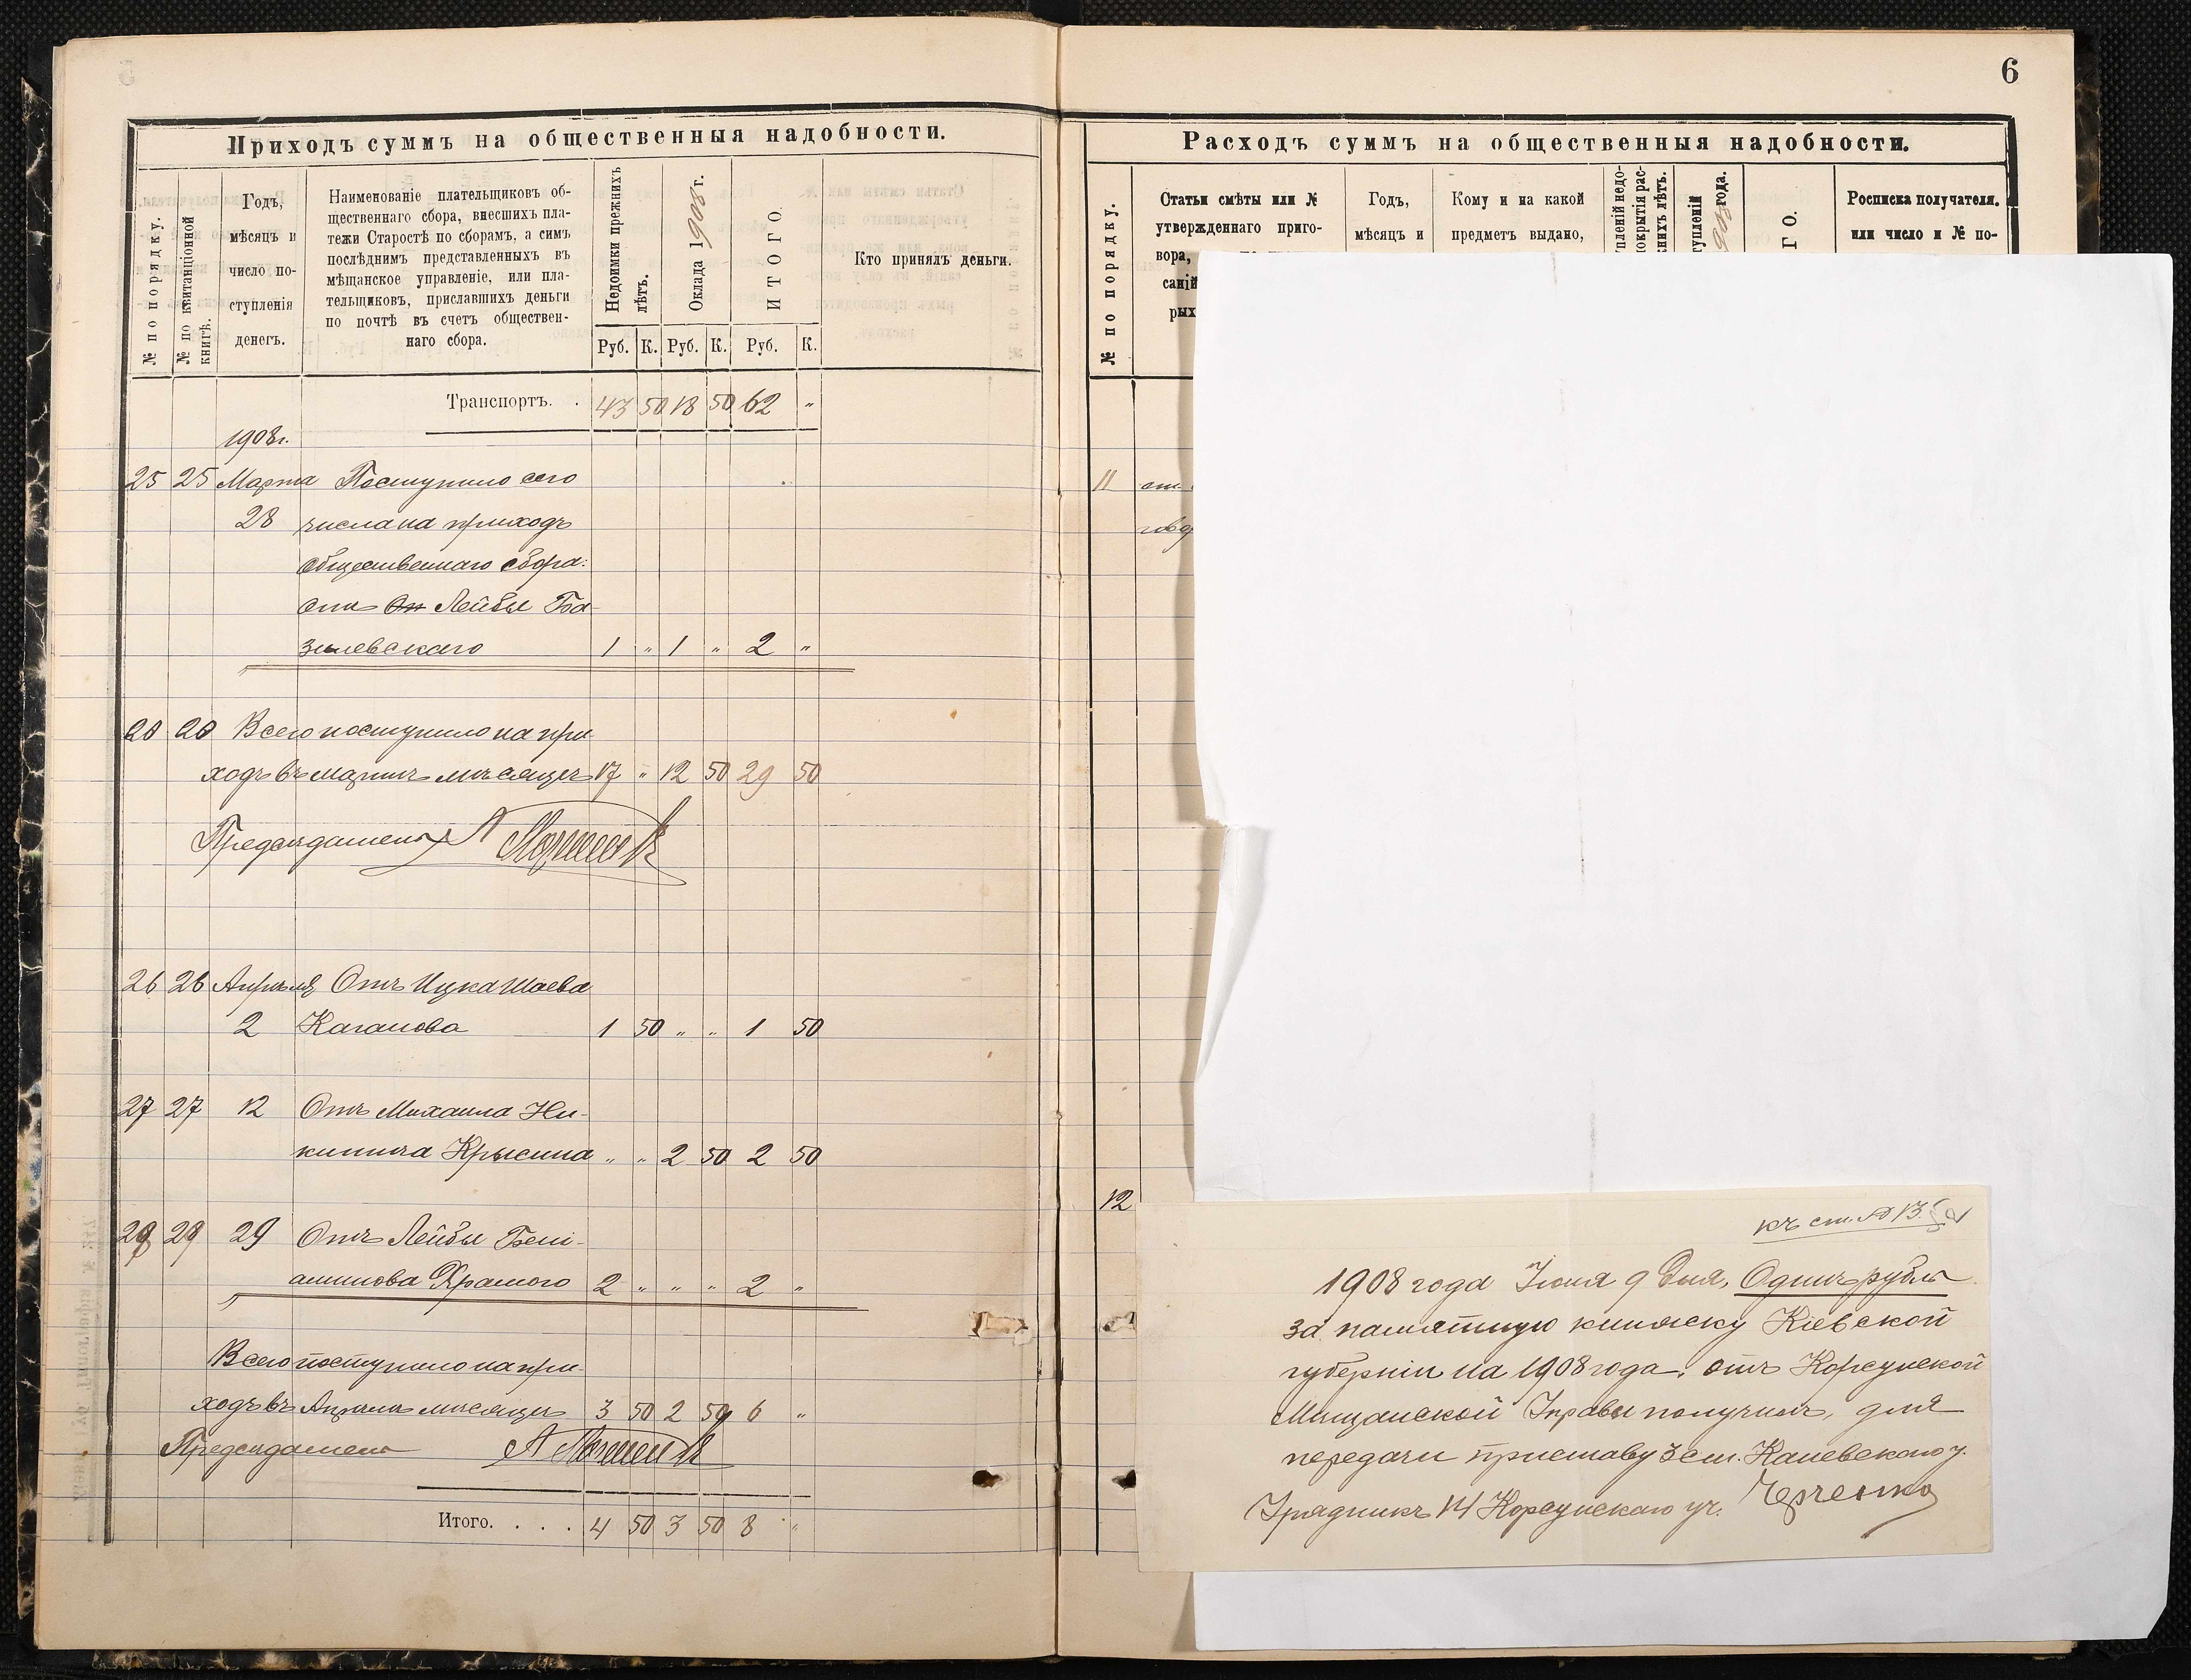 6
Приходъ суммъ на общественныя надобности.
№ по порядку.
№ по квитанціонной книгѣ.
Годъ,
мѣсяцъ и
число по-
ступленія
денегъ.
Наименованіе плательщиковъ об-
щественнаго сбора, внесшихъ пла-
тежи Старостѣ по сборамъ, а симъ
послѣднимъ представленныхъ въ
мѣщанское управленіе, или пла-
тельщиковъ, приславшихъ деньги
по почтѣ въ счетъ обществен-
наго сбора.
Недоимки прежнихъ лѣтъ.
Оклада 1908 г.
ИТОГО.
Кто принялъ деньги.
Руб. К. Руб. К. Руб. К.
Транспортъ. . 43 50 18 50 62 "
1908 г.
25 25 Марта Поступило сего
28 числа на приходъ
общественнаго сбора:
отъ От Лейбы Ба-
зилевскаго 1 " 1 " 2 "
Всего поступило на при-
ходъ въ мартѣ мѣсяцѣ 17 " 12 50 29 50
Предсѣдатель А
26 26 Апрѣля Отъ Ицка Шаева
2 Каганова 1 50 " " 1 50
27 27 12 Отъ Михаила Ни-
китича Крысина " " 2 50 2 50
29 Отъ Лейбы Бені-
аминова Храмого 2 " " " 2 "
Всего поступило на при-
ходъ въ Апрѣлѣ мѣсяцѣ 3 50 2 50 6 "
Предсѣдатель А
Итого. . . . 4 50 3 50 8 "
Расходъ суммъ на общественныя надобности.
№ по порядку.
Статьи смѣты или №
утвержденнаго приго-
вора,
саній
рых
Годъ,
мѣсяцъ и
Кому и на какой
предметъ выдано,
пленій недо-
покрытія рас-
жнихъ лѣтъ.
туплений
908 года.
ГО.
Росписка получателя.
или число и № по-
11
12
къ ст. № 13.
1908 года Іюня 9 дня, Одинъ рубль
за памятную книжку Кіевской
губерніи на 1908 года, отъ Корсунской
Мѣщанской Управы получилъ, для
передачи приставу 3 ст. Каневскаго у.
Урядникъ 14 Корсунскаго уч.